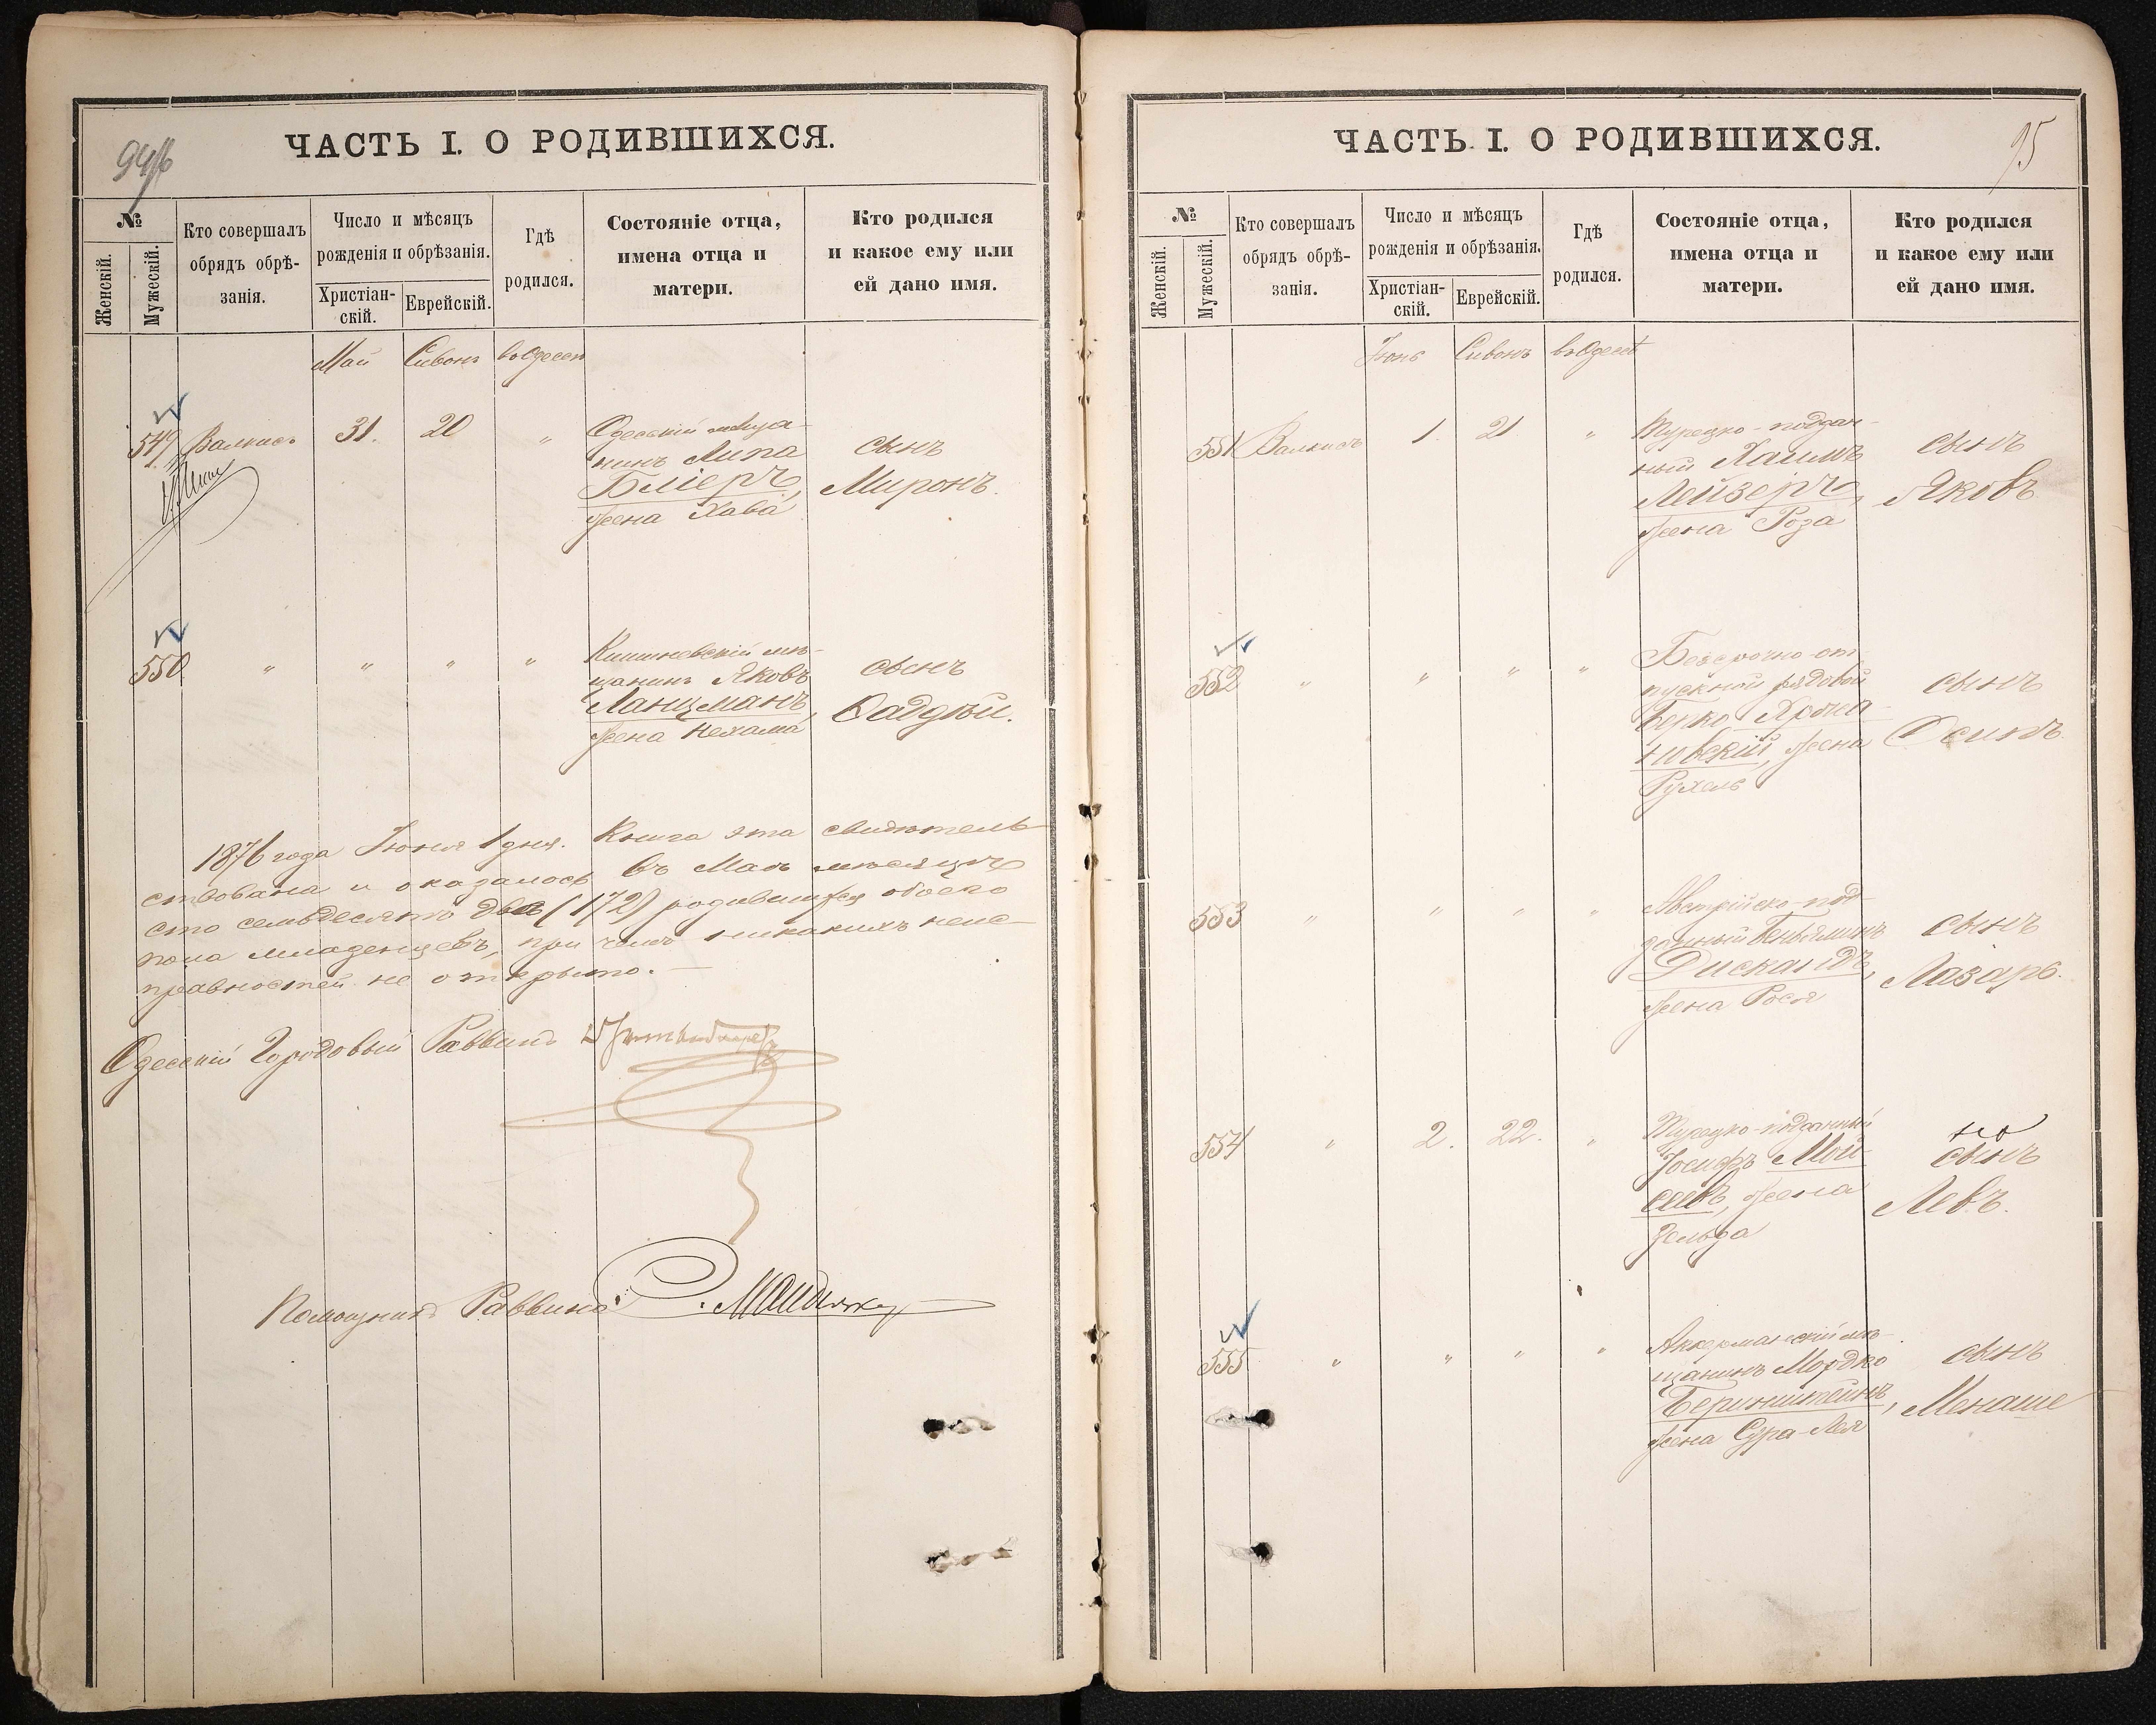 94/б
ЧАСТЬ I. О РОДИВШИХСЯ.
№
Женскій.
Мужескій.
Кто совершалъ
обрядъ обрѣ-
занія.
Число и мѣсяцъ
рожденія и обрѣзанія.
Христіан-
скій.
Еврейскій.
Гдѣ
родился.
Состояніе отца,
имена отца и
матери.
Кто родился
и какое ему или
ей дано имя.
Май Сивонъ въ Одессѣ
549 Валкисъ 31. 20 "
Одесскій мѣща-
нинъ Липа
Бліеръ,
жена Хава
сынъ
Миронъ.
550 " " " "
Кишиневскій мѣ-
щанинъ Яковъ
Ланцманъ,
жена Нехама
сынъ
Фадѣй.
1876 года Іюня 1 дня. Книга эта свидѣтель-
ствована и оказалось въ Маѣ мѣсяцѣ
сто семьдесятъ два (172) родившихся обоего
пола младенцевъ, при чемъ никакихъ неис-
правностей не открыто. —
Одесскій Городовый Раввинъ
Помощникъ Раввина
95
ЧАСТЬ I. О РОДИВШИХСЯ.
№
Женскій.
Мужескій.
Кто совершалъ
обрядъ обрѣ-
занія.
Число и мѣсяцъ
рожденія и обрѣзанія.
Христіан-
скій.
Еврейскій.
Гдѣ
родился.
Состояніе отца,
имена отца и
матери.
Кто родился
и какое ему или
ей дано имя.
Іюнь Сивонъ въ Одессѣ
551 Валкисъ 1. 21 "
Турецко-поддан-
ный Хаимъ
Лейзеръ,
жена Роза
сынъ
Яковъ
552 " " " "
Безсрочно-от-
пускной рядовой
Берко
жена
Рухель
сынъ
Осипъ.
553 " " " "
Австрійско-под-
данный Беньяминъ
Дискандъ,
жена Рося
сынъ
Лазарь.
554 " 2. 22. "
Турецко-подданный
Іосифъ Мой-
сеевъ, жена
Зельда
сынъ
Левъ.
555 " " " "
Аккерманскій мѣ-
щанинъ Мордко
Беринштейнъ,
жена Сура-Лея
сынъ
Менаше